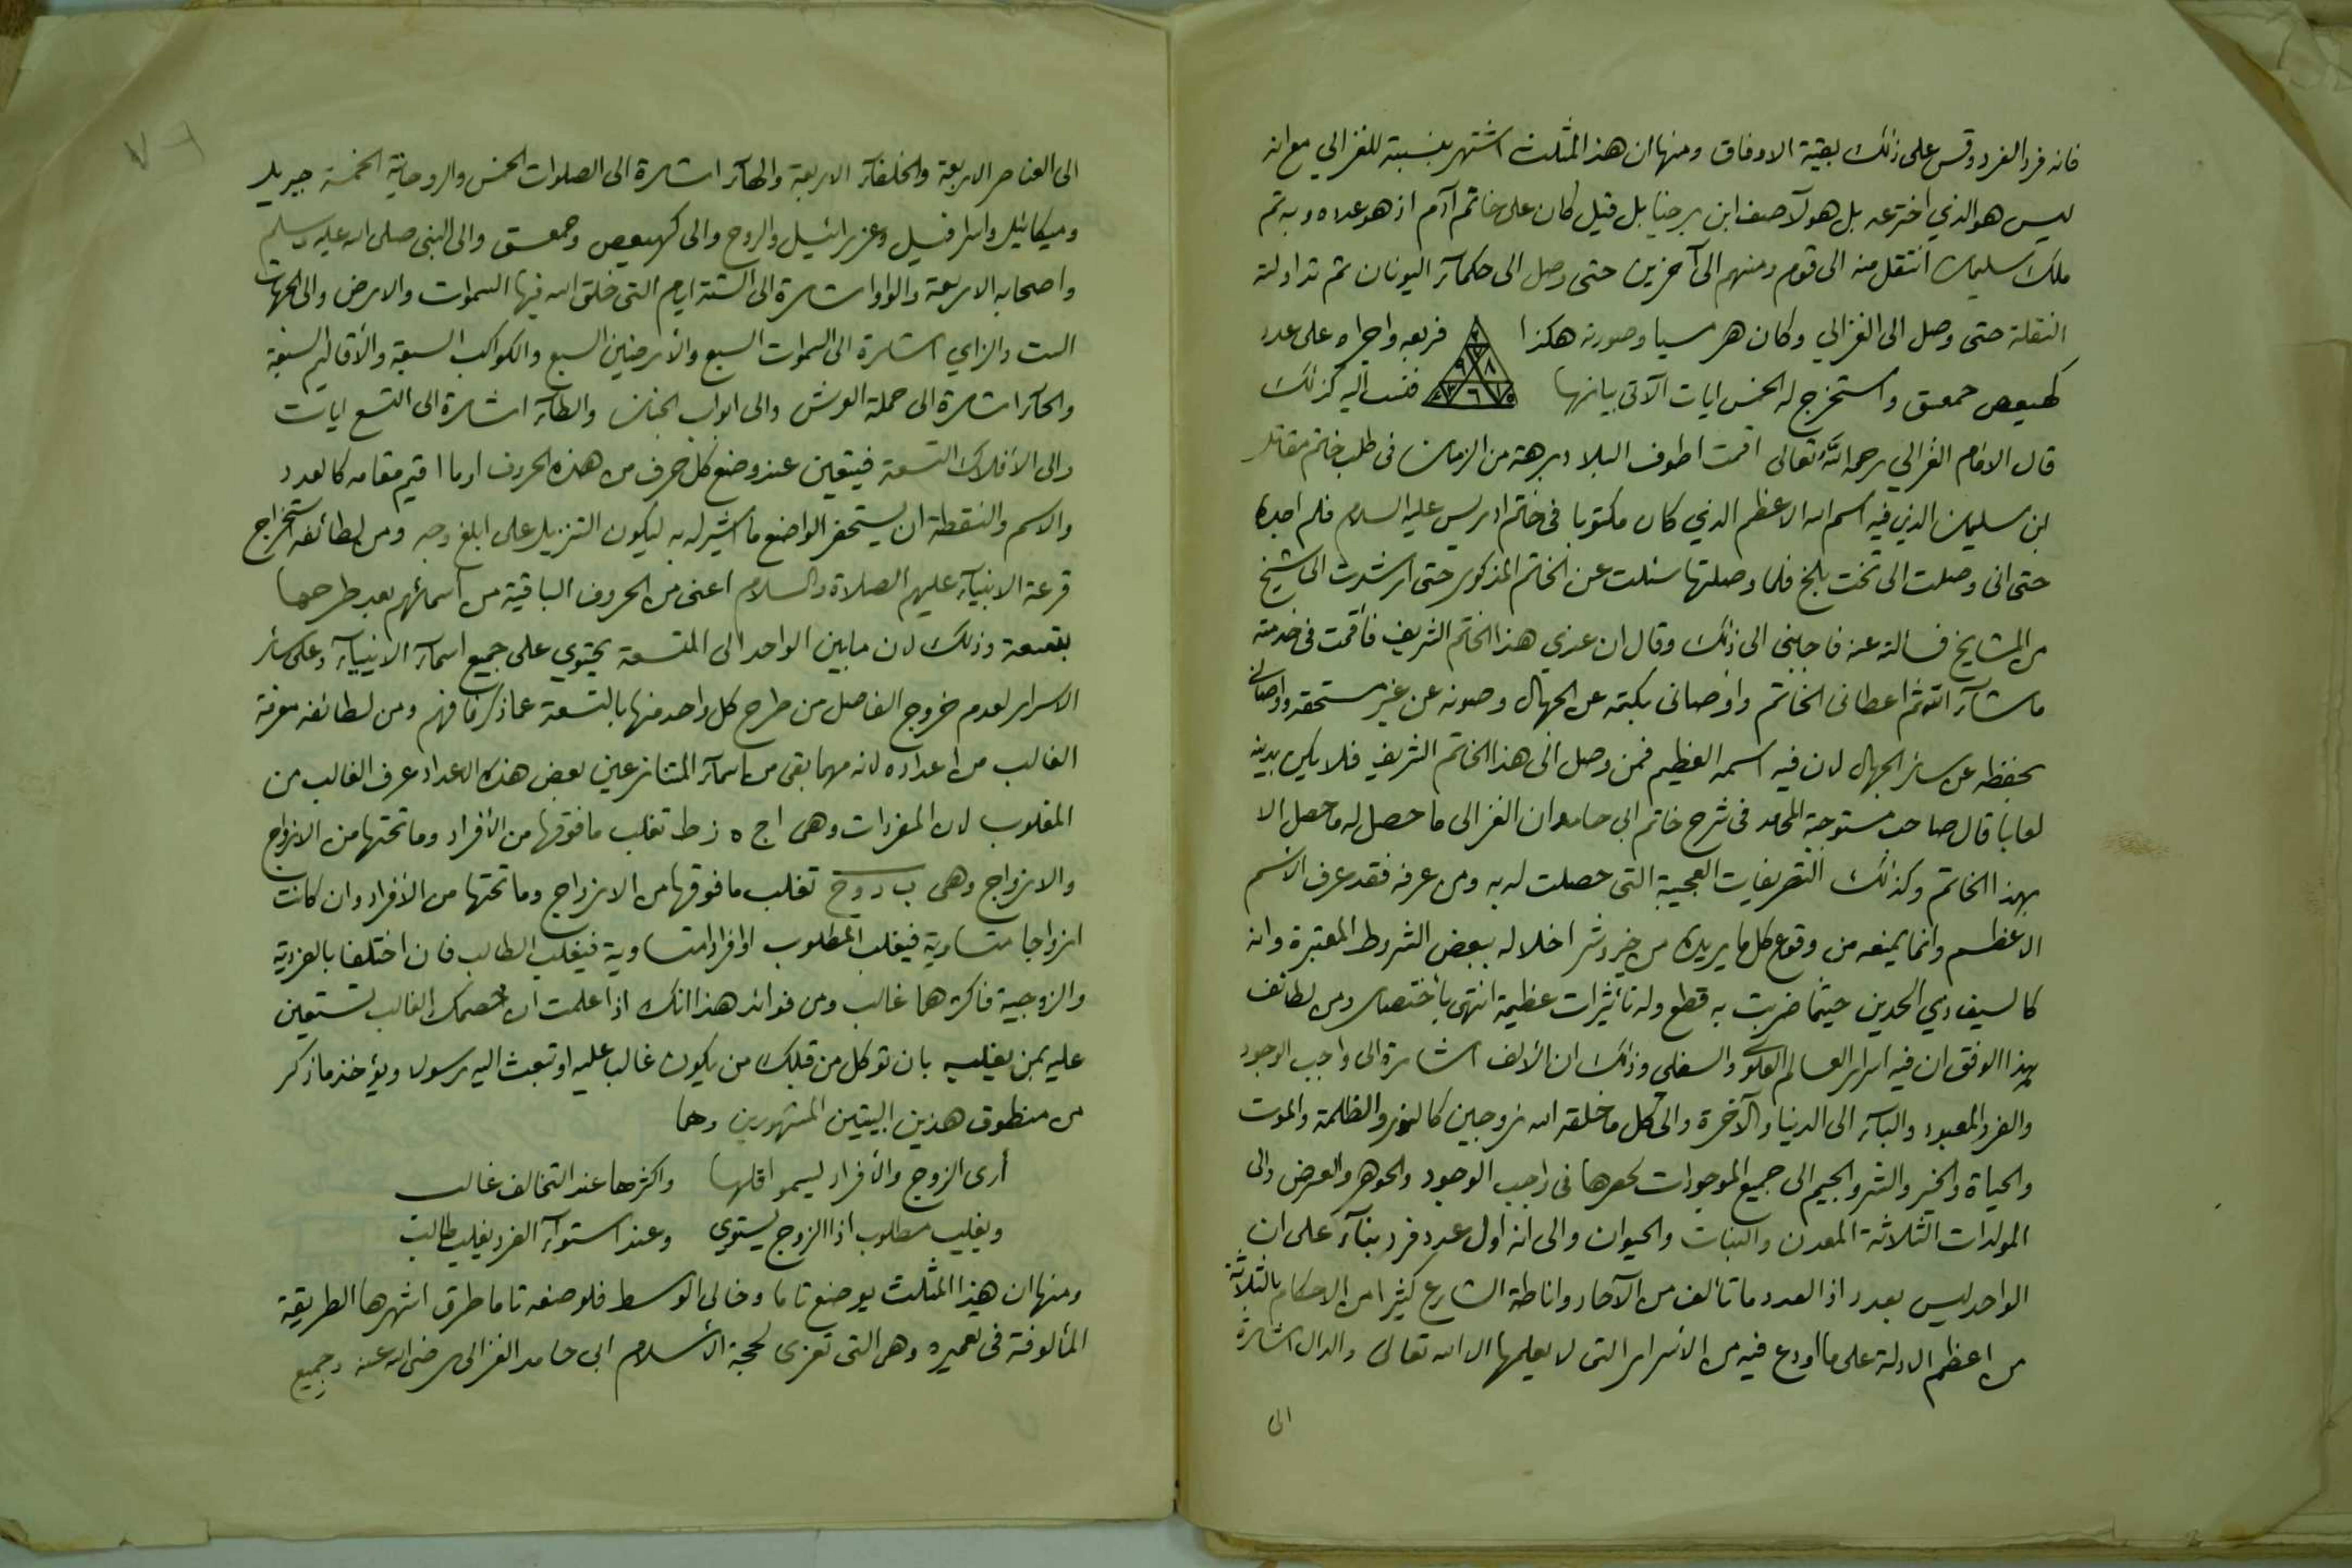 فانه فرد الفرد وقس على ذلك بقية الاوفاق ومنها ان هذا المثلث اشتهر بنسبته للغزالي مع انه
ليس هو الذي اخترعه بل هو لآصف ابن برخيا بل قيل كان على خاتم آدم اذ هو عدده وبه تم
ملك سليمان انتقل منه الى قوم ومنهم الى آخرين حتى وصل الى حكمآء اليونان ثم تداولته
النقلة حتى وصل الى الغزالي وكان هرميسيا وصورته هكذا فربعه واجراه على عدد
كهيعص حمعسق واستخرج له الخمس ايات الآتي بيانها فنسب اليه كذلك
قال الامام الغزالي رحمه الله تعالى اقمت اطوف البلاد برهة من الزمان في طلب خاتم مقاتل
بن سليمان الذي فيه اسم الله الاعظم الذي كان مكتوبا في خاتم ادريس عليه السلام فلم اجده
حتى انى وصلت الى تخت بلخ فلما وصلتها سئلت عن الخاتم المذكور حتى ارشدت الى شيخ
من المشايخ فسالته عنه فاجابنى الى ذلك وقال ان عندي هذا الخاتم الشريف فأقمت في خدمته
ما شآء الله ثم اعطانى الخاتم واوصانى بكتمه عن الجهال وصونه عن غير مستحقه واوصانى
بحفظه عن سائر الجهال لان فيه اسمه العظيم فمن وصل الى هذا الخاتم الشريف فلا يكن بدينه
لعابا قال صاحب مستوجبة المحامد فى شرح خاتم ابي حامد ان الغزالى ما حصل له ما حصل الا
بهذا الخاتم وكذلك التصريفات العجيبة التى حصلت له به ومن عرفه فقد عرف الاسم
الاعظم وانما يمنعه من وقوع كل ما يريده من خير وشر اخلاله ببعض الشروط المعتبرة وانه
كالسيف ذي الحدين حيثما ضربت به قطع وله تأثيرات عظيمة انتهى بأختصار ومن لطائف
بهذا الوفق ان فيه اسرار العالم العلوى والسفلى وذلك ان الألف اشارة الى واجب الوجود
والفرد المعبود والبآء الى الدنيا والآخرة والى كل ما خلقه الله زوجين كالنور والظلمة والموت
والحياة والخير والشر والجيم الى جميع الموجودات لحصرها فى واجب الوجود والجوهر والعرض والى
المولدات الثلاثة المعدن والنبات والحيوان والى انه اول عدد فرد بنآء على ان
الواحد ليس بعدد اذ العدد ما تألف من الآحاد واناطة الشارع كثيرا من الاحكام بالثلاثة
من اعظم الادلة على ما اودع فيه من الأسرار التى لا يعلمها الا الله تعالى والدال اشارة
الى
الى العناصر الاربعة والخلفآء الاربعة والهآء اشارة الى الصلوات الخمس والروحانية الخمسة جبريل
وميكائيل واسرافيل وعزرائيل والروح والى كهيعص وحمعسق والى النبى صلى الله عليه وسلم
واصحابه الاربعة والواو اشارة الى الستة ايام التى خلق الله فيها السموات والارض والى الجهات
الست والزاي اشارة الى السموات السبع والأرضين السبع والكواكب السبعة والأقاليم السبعة
والحآء اشارة الى حملة العرش والى ابواب الجنان والطآء اشارة الى التسع ايات
والى الأفلاك التسعة فيتعين عند وضع كل حرف من هذه الحروف او ما اقيم مقامه كالعدد
والاسم والنقطة ان يستحضر الواضع ما اشير له به ليكون التنزيل على ابلغ وجه ومن لطائفه استخراج
قرعة الانبيآء عليهم الصلاة والسلام اعنى من الحروف الباقية من اسمائهم بعد طرحها
بتسعة وذلك لان ما بين الواحد الى التسعة يحتوي على جميع اسمآء الانبيآء وعلى سائر
الاسرار لعدم خروج الفاضل من طرح كل واحد منها بالتسعة عما ذكر فافهم ومن لطائفه معرفة
الغالب من اعداده لانه مهما بقى من اسمآء المتنازعين بعض هذه الاعداد عرف الغالب من
المغلوب لان المفردات وهى اج ه ز ط تغلب ما فوقها من الأفراد وما تحتها من الازواج
والازواج وهى ب د و ح تغلب ما فوقها من الازواج وما تحتها من الأفراد وان كانت
ازواجا متساوية فيغلب المطلوب او افرادا متساوية فيغلب الطالب فان اختلفا بالفردية
والزوجية فاكثرهما غالب ومن فوائد هذا انك اذا علمت ان خصمك الغالب تستعين
عليه بمن يغلبه بان توكل من قبلك من يكون غالب عليه او تبعث اليه رسولا ويؤخذ ما ذكر
من منطوق هذين البيتين المشهورين وهما
أرى الزوج والأفراد ليسمو اقلها واكثرها عند التخالف غالب
ويغلب مطلوب اذا الزوج يستوي وعند استوآء الفرد يغلب طالب
ومنها ان هذا المثلث يوضع تاما وخالى الوسط فلوضعه تاما طرق اشهرها الطريقة
المألوفة فى تعميره وهى التى تعزى لحجة الأسلام ابى حامد الغزالى رضى الله عنه وجميع